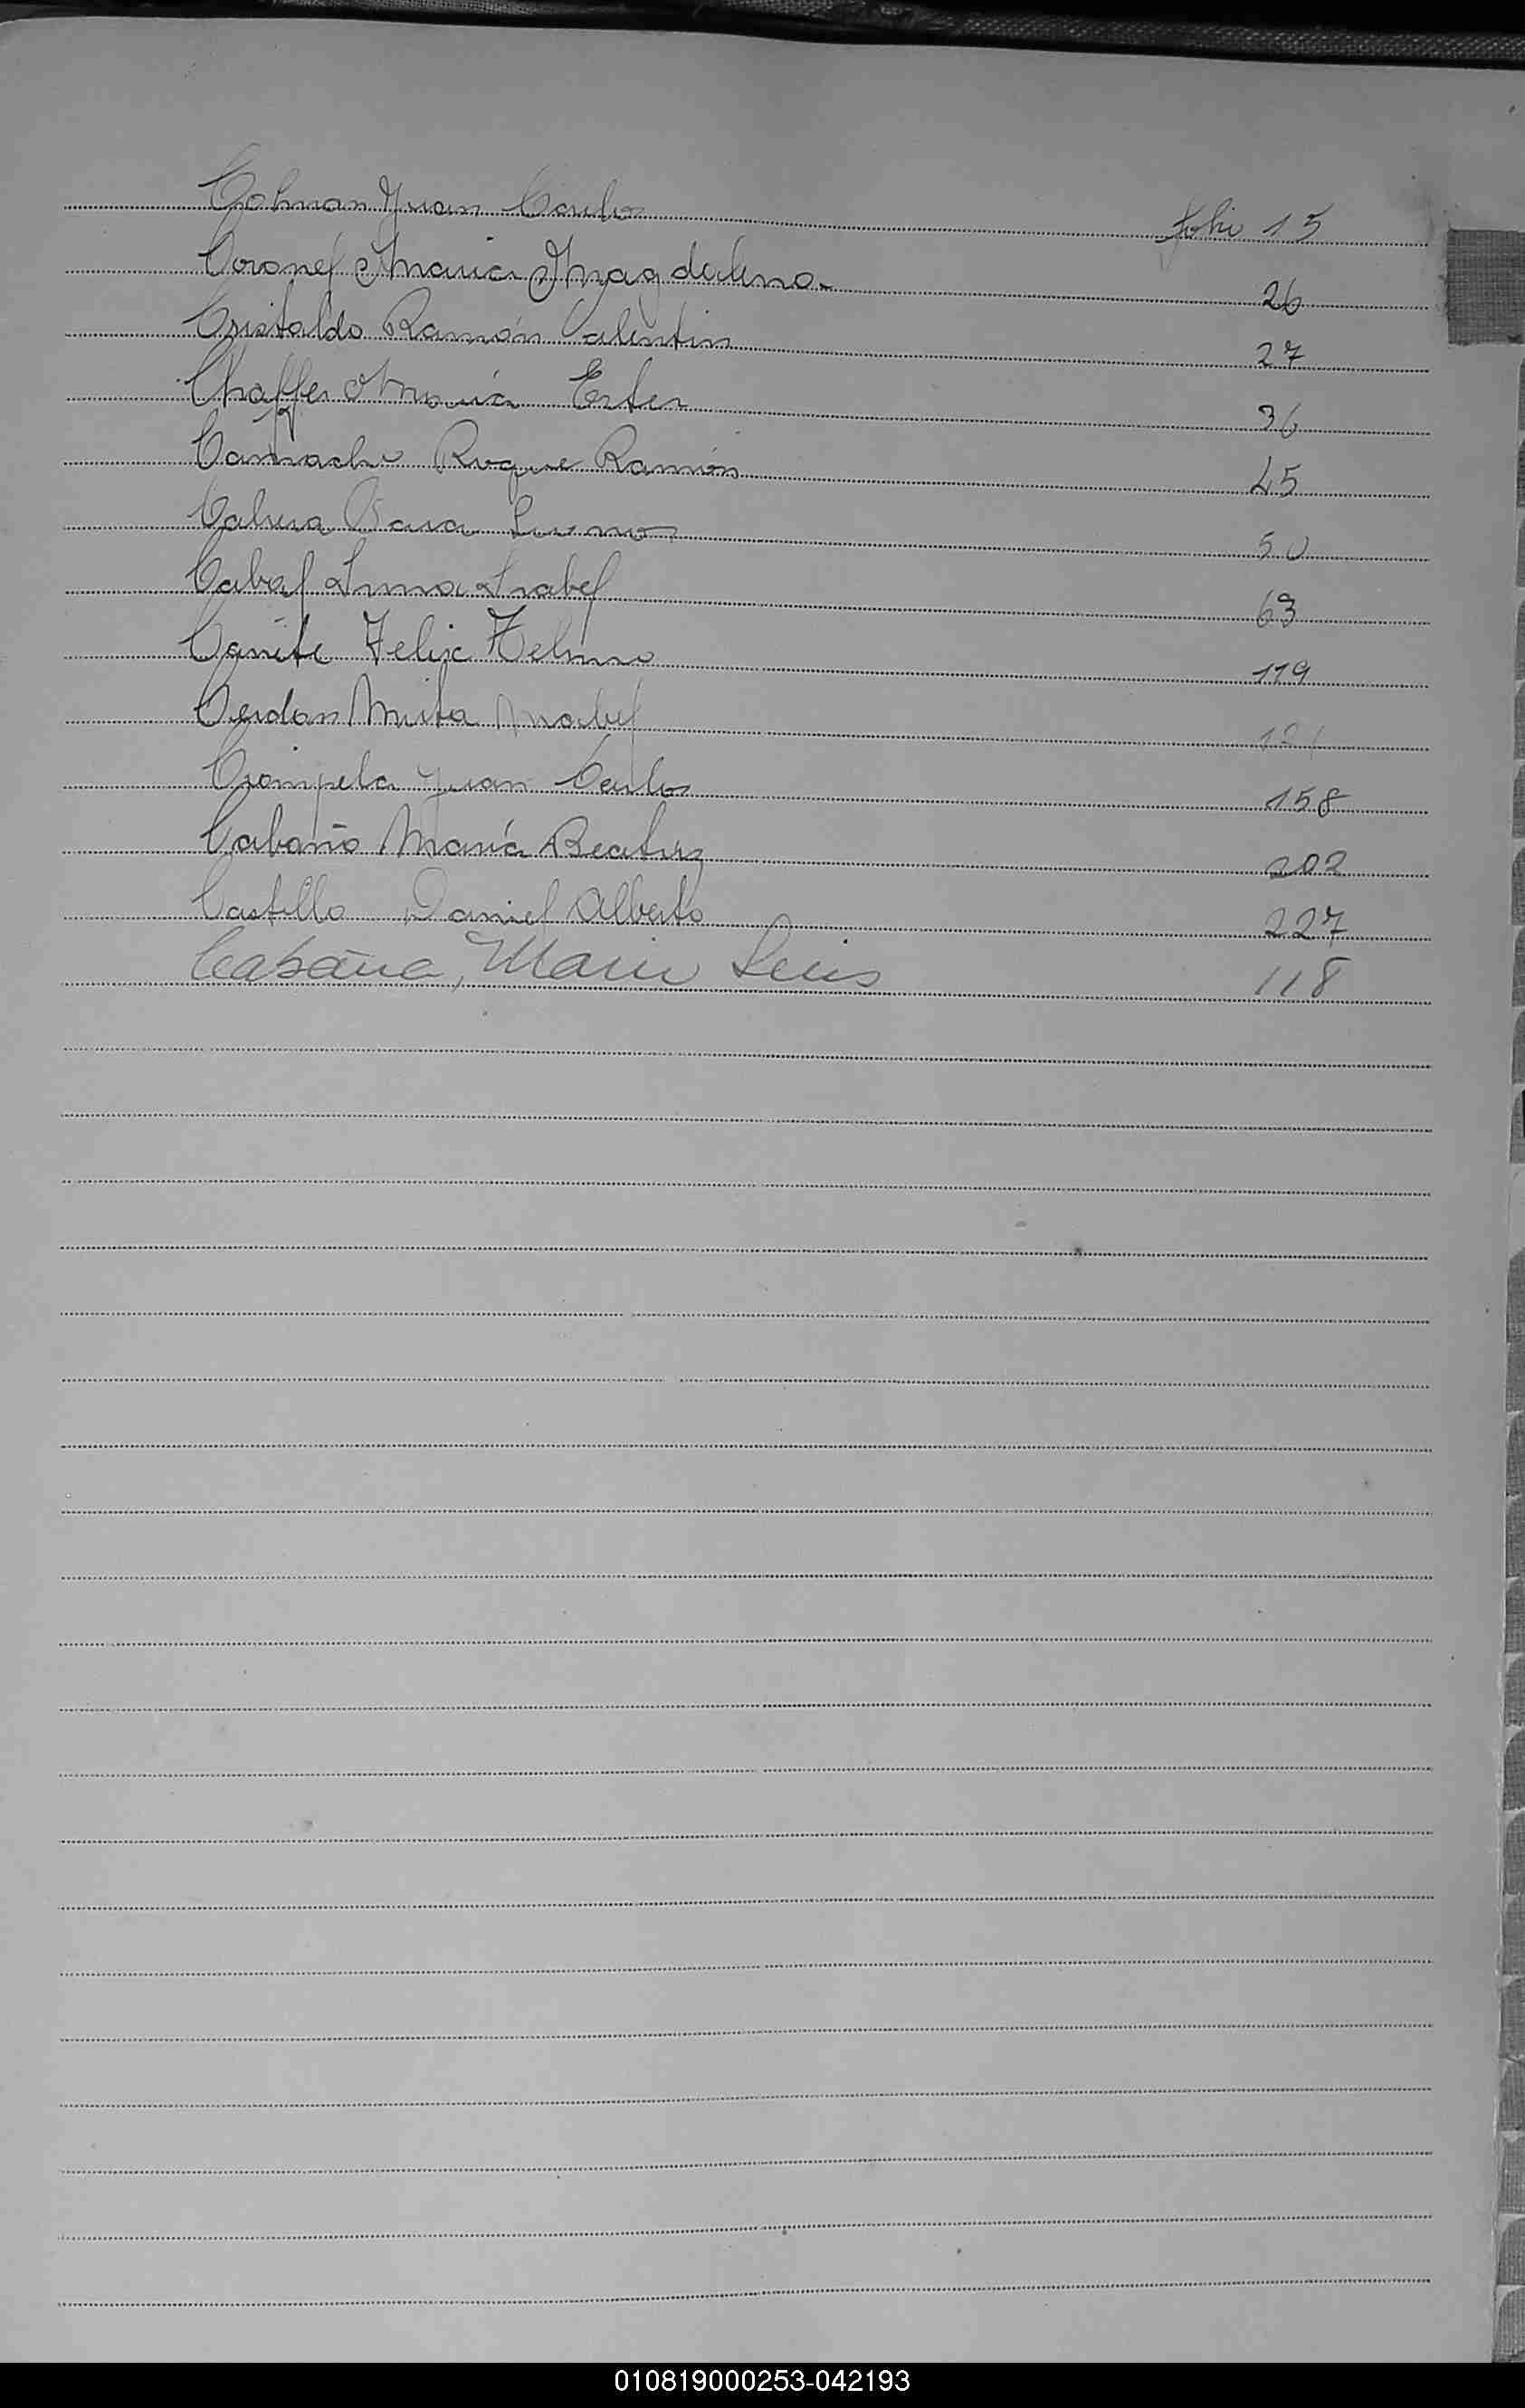 Colman Juan Carlos folio 15
Coronel Maria Magdalena 26
Cristaldo Ramón Valentin 27
Chaffer Maria Ester 36
Camacho Roque Ramón 45
50
Cabal Irma Isabel 63
Cañete Felix Telmo 119
Cerdan Mirta Mabel
Crompela Juan Carlos 158
Cabaño María Beatriz 202
Castillo Daniel Alberto 227
Cabaña, Mario Luis 118
010819000253-042193